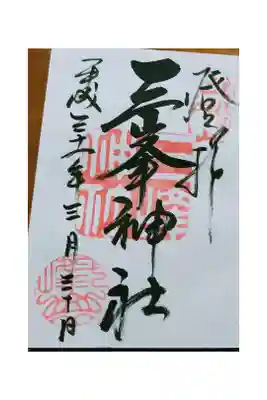 登拝
三峯神社
平成三十一年三月三十日